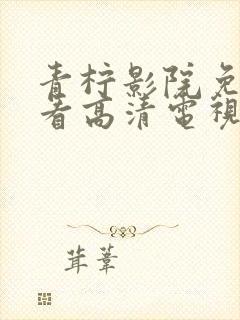 青柠影院免
看高清電視
茸葦